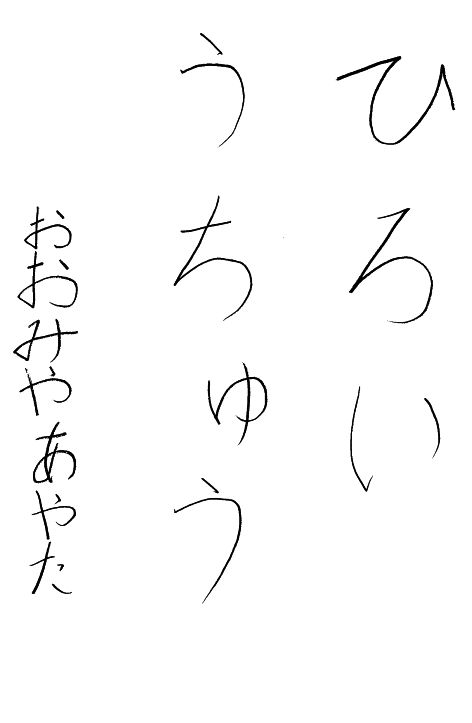 ひろい
うちゅう
おおみやあやた